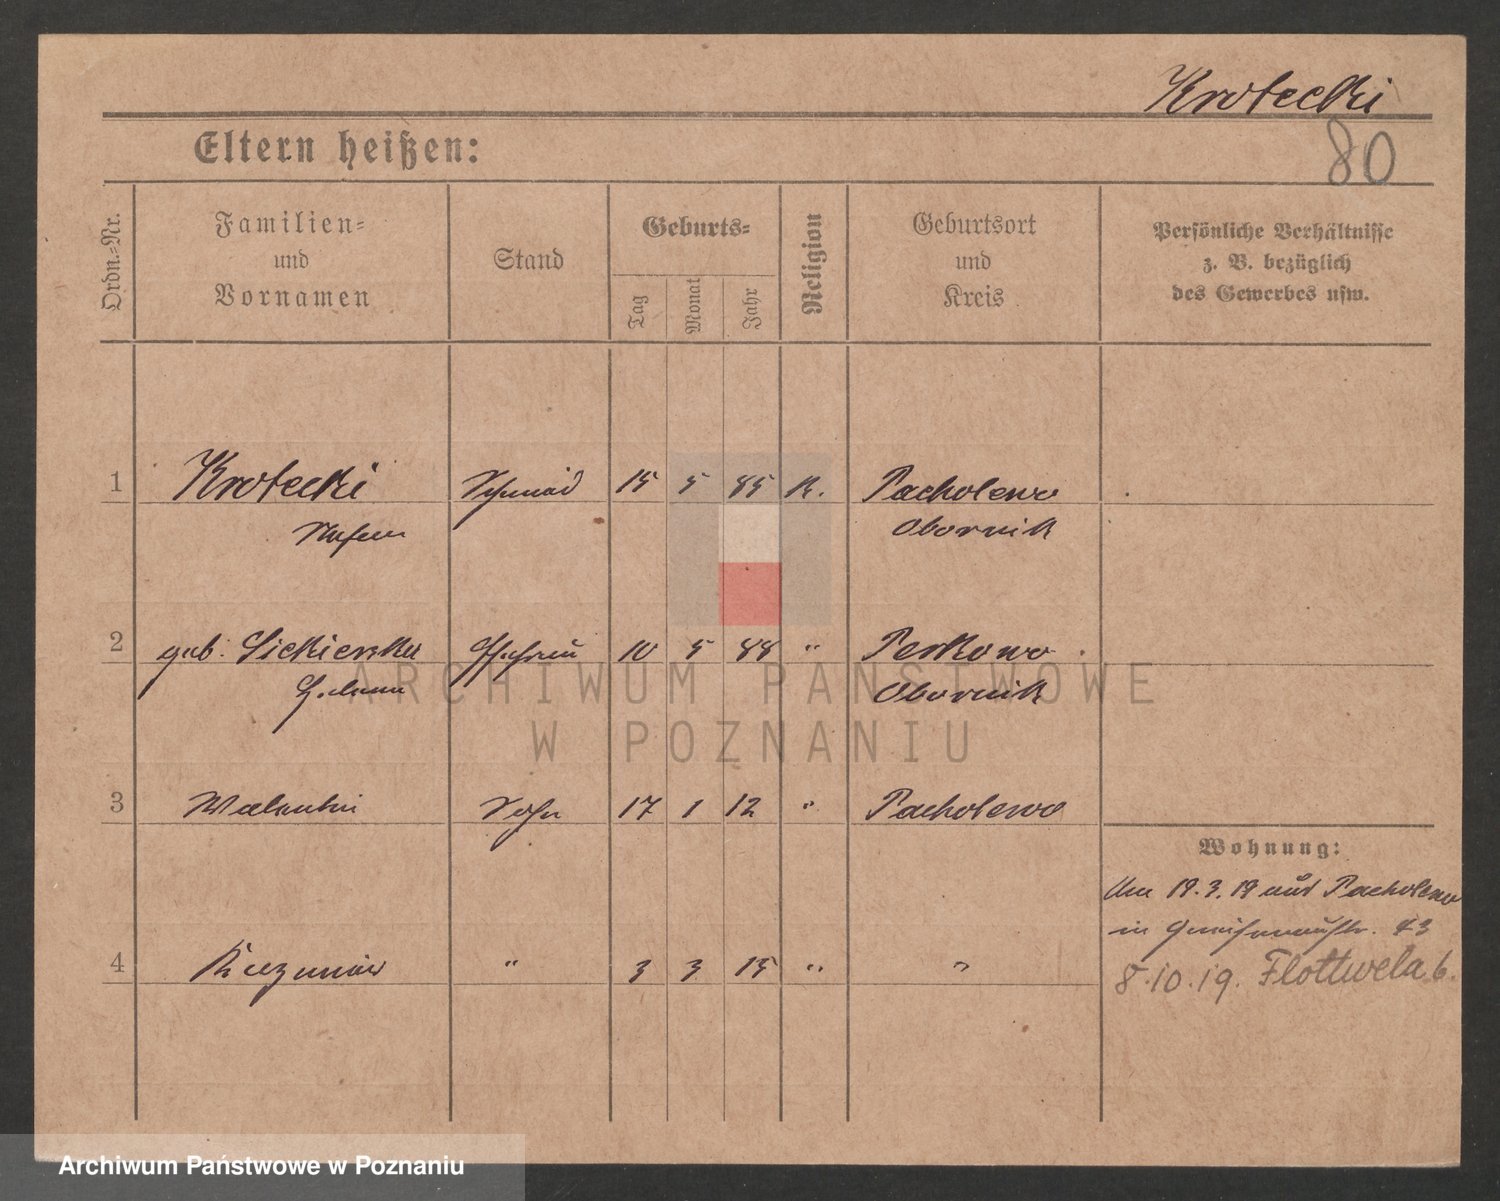 Krotecki
80
Eltern heißen:
Ordn.=Nr.
Familien=
und
Vornamen
Stand
Geburts=
Tag
Monat
Jahr
Religion
Geburtsort
und
Kreis
Persönliche Verhältnisse
z. B. bezüglich
des Gewerbes usw.
1 Krotecki Schmied 15 5 85 K. Pacholewo
Obornik
2 geb. Ehefrau 10 5 88 " Perkowo
Obornik
3 Valentin Sohn 17 1 12 " Pacholewo
Wohnung:
Am 19.3.19 aus Pacholewo
in Gneisenaustr. 43
4 Kazimir " 3 3 15 " "
8.10.19. 6.
ARCHIWUM PAŃSTWOWE
W POZNANIU
Archiwum Państwowe w Poznaniu